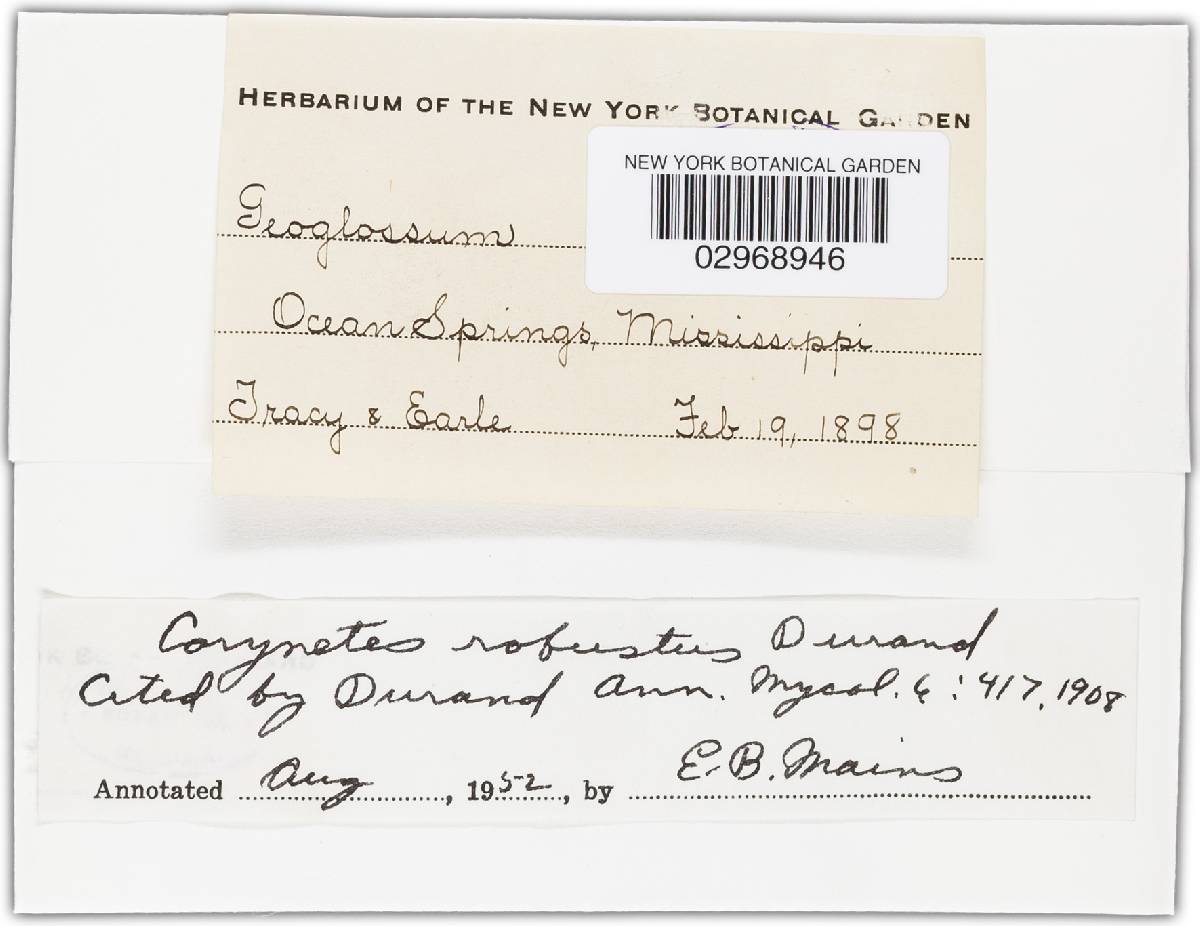 HERBARIUM OF THE NEW YORK BOTANICAL GARDEN
NEW YORK BOTANICAL GARDEN
02968946
Geoglossum
Ocean Springs, Mississippi
Tracy & Earle Feb 19, 1898
Corynetes robustus Durand
Cited by Durand Ann. Mycol. 6 : 417, 1908
Annotated Aug, 1952, by E. B. Mains